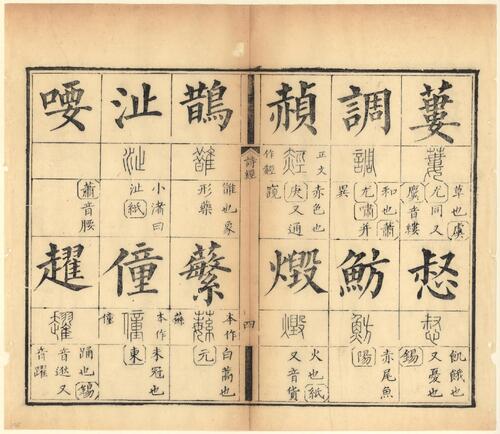 蔞
蔞
草也虞
尤同又
麌音縷
惄
惄
飢餓也
又憂也
錫
調
調
和也蕭
尤嘯并
異
魴
魴
赤尾魚
陽
赬
正文
赤色也
庚又通
燬
燬
火也紙
又音貨
詩經
四
鵲
雒也象
形藥
蘩
本作
白蒿也
元
沚
沚
小渚曰
沚紙
僮
本作
僮
未冠也
東
喓
蕭音腰
趯
趯
踊也錫
音逖又
音躍